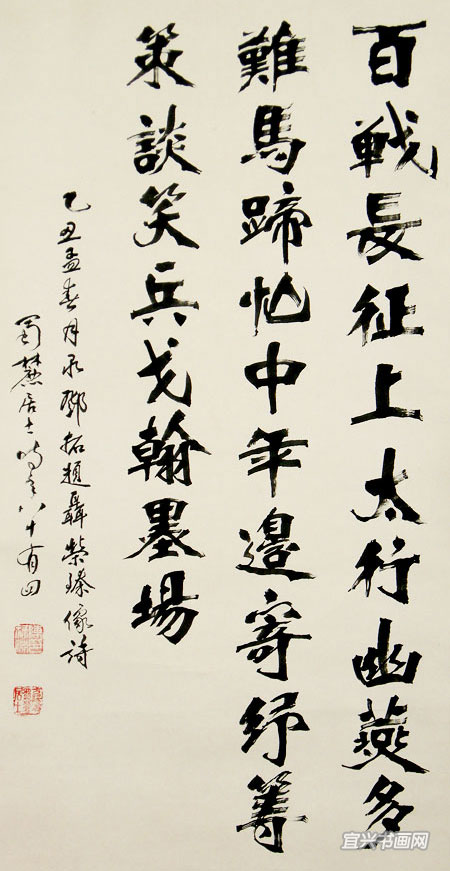 百戦長征上太行幽燕多
難馬蹄忙中年邊寄紓籌
策談笑兵戈翰墨場
乙丑孟春月录鄧拓題聶榮臻像詩
蜀居士時年八十有四
宜兴书画网